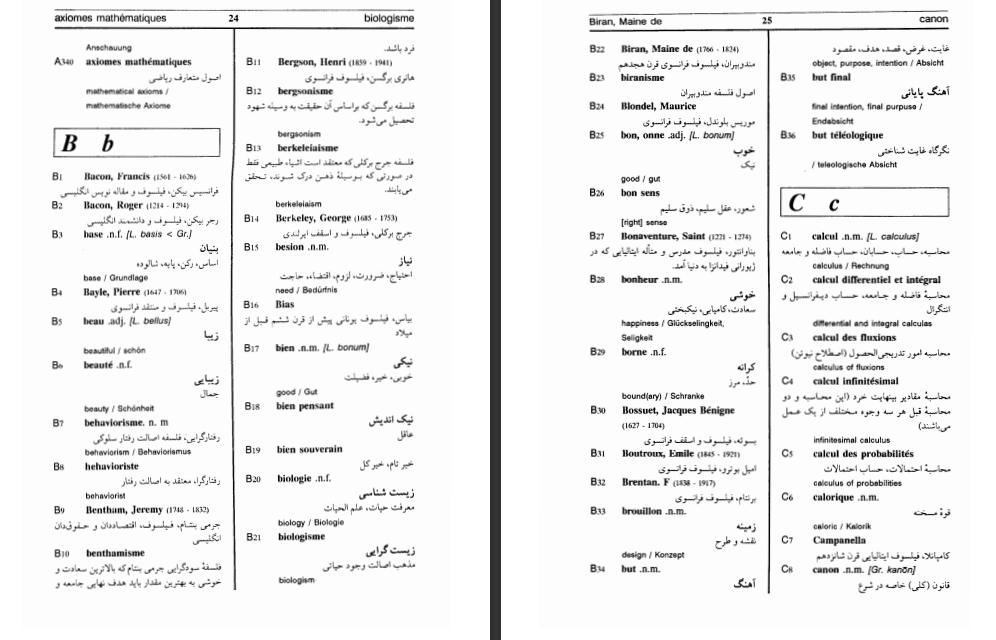 axiomes mathématiques 24 biologisme
Anschauung
A340 axiomes mathématiques
اصول متعارف ریاضی
mathematical axioms /
mathematische Axiome
B b
B1 Bacon, Francis (1561 - 1626)
فرانسیس بیکن، فیلسوف و مقاله نویس انگلیسی
B2 Bacon, Roger (1214 - 1294)
رجر بیکن، فیلسوف و دانشمند انگلیسی
B3 base .n.f. [L. basis < Gr.]
بنیان
اساس، رکن، پایه، شالوده
base / Grundlage
B4 Bayle, Pierre (1647 - 1706)
پیربل، فیلسوف و منتقد فرانسوی
B5 beau .adj. [L. bellus]
زیبا
beautiful / schön
B6 beauté .n.f.
زیبایی
جمال
beauty / Schönheit
B7 behaviorisme. n. m
رفتارگرایی، فلسفه اصالت رفتار سلوکی
behaviorism / Behaviorismus
B8 hehavioriste
رفتارگرا، معتقد به اصالت رفتار
behaviorist
B9 Bentham, Jeremy (1748 - 1832)
جرمی بنتام، فیلسوف، اقتصاددان و حقوق‌دان
انگلیسی
B10 benthamisme
فلسفهٔ سودگرایی جرمی بنتام که بالاترین سعادت و
خوشی به بهترین مقدار باید هدف نهایی جامعه و
فرد باشد.
B11 Bergson, Henri (1859 - 1941)
هانری برگسن، فیلسوف فرانسوی
B12 bergsonisme
فلسفه برگسن که براساس آن حقیقت به وسیله شهود
تحصیل می‌شود.
bergsonism
B13 berkeleiaisme
فلسفه جرج برکلی که معتقد است اشیاء طبیعی فقط
در صورتی که بوسیلهٔ ذهن درک شوند، تحقق
می‌یابند.
berkeleiaism
B14 Berkeley, George (1685 - 1753)
جرج برکلی، فیلسوف و اسقف ایرلندی
B15 besion .n.m.
نیاز
احتیاج، ضرورت، لزوم، اقتضاء، حاجت
need / Bedürfnis
B16 Bias
بیاس، فیلسوف یونانی پیش از قرن ششم قبل از
میلاد
B17 bien .n.m. [L. bonum]
نیکی
خوبی، خیر، فضیلت
good / Gut
B18 bien pensant
نیک اندیش
عاقل
B19 bien souverain
خیر تام، خیر کل
B20 biologie .n.f.
زیست شناسی
معرفت حیات، علم الحیات
biology / Biologie
B21 biologisme
زیست گرایی
مذهب اصالت وجود حیاتی
biologism
Biran, Maine de 25 canon
B22 Biran, Maine de (1766 - 1824)
مندوبیران، فیلسوف فرانسوی قرن هجدهم
B23 biranisme
اصول فلسفه مندوبیران
B24 Blondel, Maurice
موریس بلوندل، فیلسوف فرانسوی
B25 bon, onne .adj. [L. bonum]
خوب
نیک
good / gut
B26 bon sens
شعور، عقل سلیم، ذوق سلیم
[right] sense
B27 Bonaventure, Saint (1221 - 1274)
بناوانتور، فیلسوف مدرس و متأله ایتالیایی که در
ژیورانی فیدانزا به دنیا آمد.
B28 bonheur .n.m.
خوشی
سعادت، کامیابی، نیکبختی
happiness / Glückseligkeit,
Seligkeit
B29 borne .n.f.
کرانه
حدّ، مرز
bound(ary) / Schranke
B30 Bossuet, Jacques Bénigne
(1627 - 1704)
بسوئه، فیلسوف و اسقف فرانسوی
B31 Boutroux, Emile (1845 - 1921)
امیل بوترو، فیلسوف فرانسوی
B32 Brentan. F (1838 - 1917)
برنتام، فیلسوف فرانسوی
B33 brouillon .n.m.
زمینه
نقشه و طرح
design / Konzept
B34 but .n.m.
آهنگ
غایت، غرض، قصد، هدف، مقصود
object, purpose, intention / Absicht
B35 but final
آهنگ پایانی
final intention, final purpuse /
Endabsicht
B36 but téléologique
نگرگاه غایت شناختی
/ teleologische Absicht
C c
C1 calcul .n.m. [L. calculus]
محاسبه، حساب، حسابان، حساب فاضله و جامعه
calculus / Rechnung
C2 calcul differentiel et intégral
محاسبهٔ فاضله و جامعه، حساب دیفرانسیل و
انتگرال
differential and integral calculas
C3 calcul des fluxions
محاسبه امور تدریجی‌الحصول (اصطلاح نیوتن)
calculus of fluxions
C4 calcul infinitésimal
محاسبهٔ مقادیر بینهایت خرد (این محاسبه و دو
محاسبهٔ قبل هر سه وجوه مختلف از یک عمل
می‌باشند)
infinitesimal calculus
C5 calcul des probabilités
محاسبهٔ احتمالات، حساب احتمالات
calculus of probabilities
C6 calorique .n.m.
قوهٔ مسخنه
caloric / Kalorik
C7 Campanella
کامپانلا، فیلسوف ایتالیایی قرن شانزدهم
C8 canon .n.m. [Gr. kanōn]
قانون (کلی) خاصه در شرع